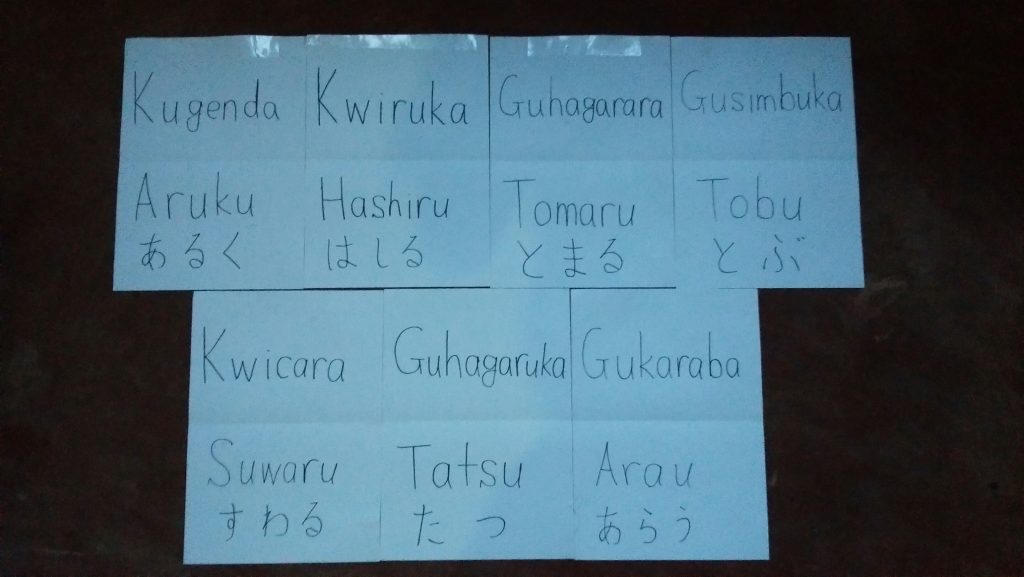 Kugenda
Aruku
あるく
Kwiruka
Hashiru
はしる
Guhagarara
Tomaru
とまる
Gusimbuka
Tobu
とぶ
Kwicara
Suwaru
すわる
Guhagaruka
Tatsu
たつ
Gukaraba
Arau
あらう